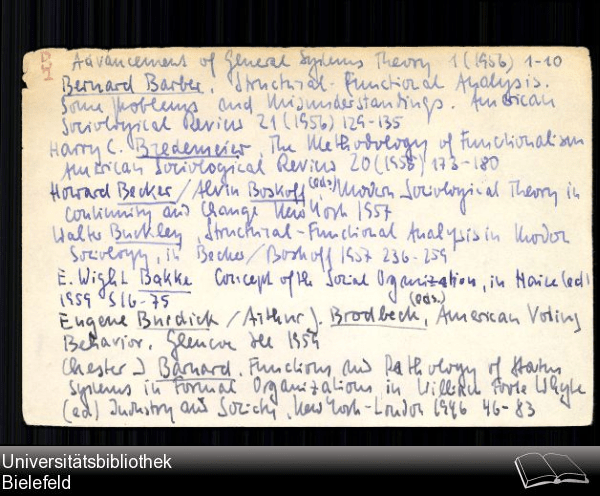 Advancement of General Systems Theory 1 (1956) 1-10
Bernard Barber, Structural-Functional Analysis.
Some Problems and Misunderstandings. American
Sociological Review 21 (1956) 129-135
Harry C. Bredemeier, The Methodology of Functionalism
American Sociological Review 20 (1955) 173-180
Howard Becker / Alvin Boskoff (eds.) Modern Sociological Theory in
continuity and Change New York 1957
Walter Buckley, Structural-Functional Analysis in Modern
Sociology, in Becker/Boskoff 1957 236-259
E. Wight Bakke Concept of the Social Organization, in Haire (ed)
1959 S 16-75
Eugene Burdick / Arthur J. Brodbeck, (eds.) American Voting
Behavior. Glencoe 1959
Chester J Barnard, Functions and Pathology of Status
Systems in Formal Organizations, in William Foote Whyte
(ed) Industry and Society, New York-London 1946 46-83
Universitätsbibliothek
Bielefeld